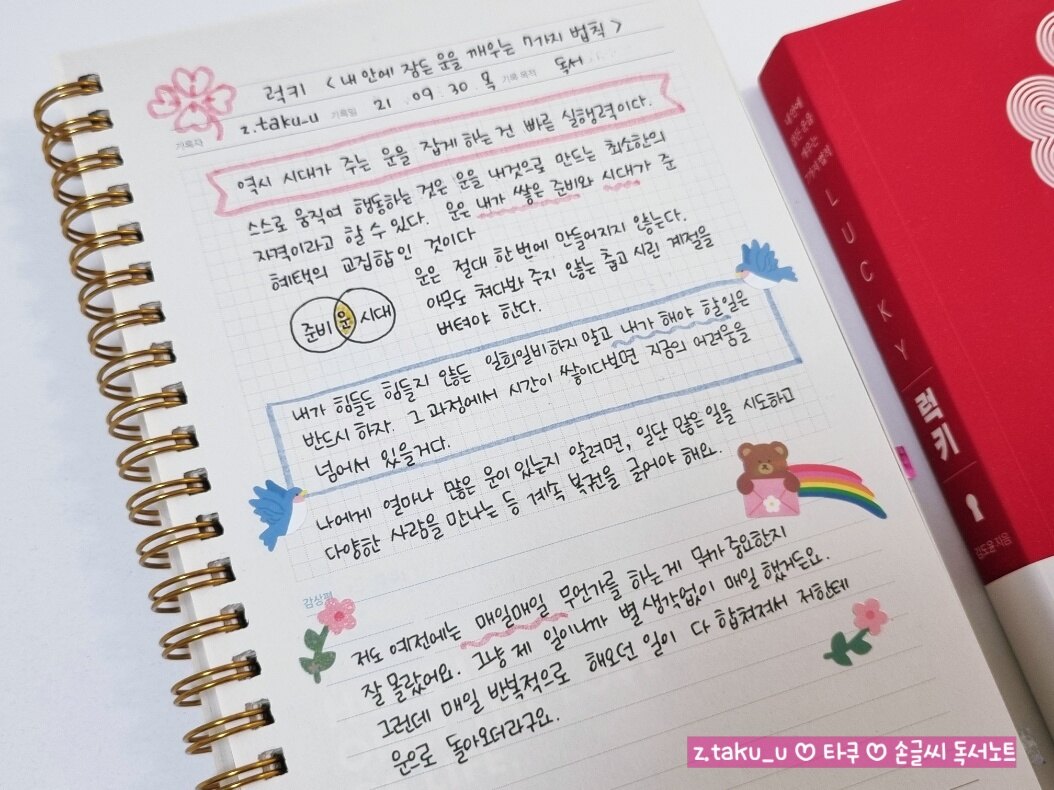 럭키 <내 안에 잠든 운을 깨우는 7가지 법칙>
기록자 z.taku_u 기록일 21. 09. 30 목 기록 목적 독서
역시 시대가 주는 운을 잡게 하는 건 빠른 실행력이다.
스스로 움직여 행동하는 것은 운을 내것으로 만드는 최소한의
자격이라고 할 수 있다. 운은 내가 쌓은 준비와 시대가 준
혜택의 교집합인 것이다
준비 운 시대
운은 절대 한번에 만들어지지 않는다.
아무도 쳐다봐 주지 않는 춥고 시린 계절을
버텨야 한다.
내가 힘들든 힘들지 않든 일희일비하지 말고 내가 해야 할 일은
반드시 하자. 그 과정에서 시간이 쌓이다보면 지금의 어려움을
넘어서 있을거다.
나에게 얼마나 많은 운이 있는지 알려면, 일단 많은 일을 시도하고
다양한 사람을 만나는 등 계속 복권을 긁어야 해요.
감상평
저도 예전에는 매일매일 무언가를 하는게 뭐가 중요한지
잘 몰랐어요. 그냥 제 일이니까 별 생각없이 매일 했거든요.
그런데 매일 반복적으로 해오던 일이 다 합쳐져서 저한테
운으로 돌아오더라구요.
내 안에
잠든 운을
깨우는
7가지 법칙
LUCKY
럭키
김도윤 지음
z.taku_u ♡ 타쿠 ♡ 손글씨 독서노트